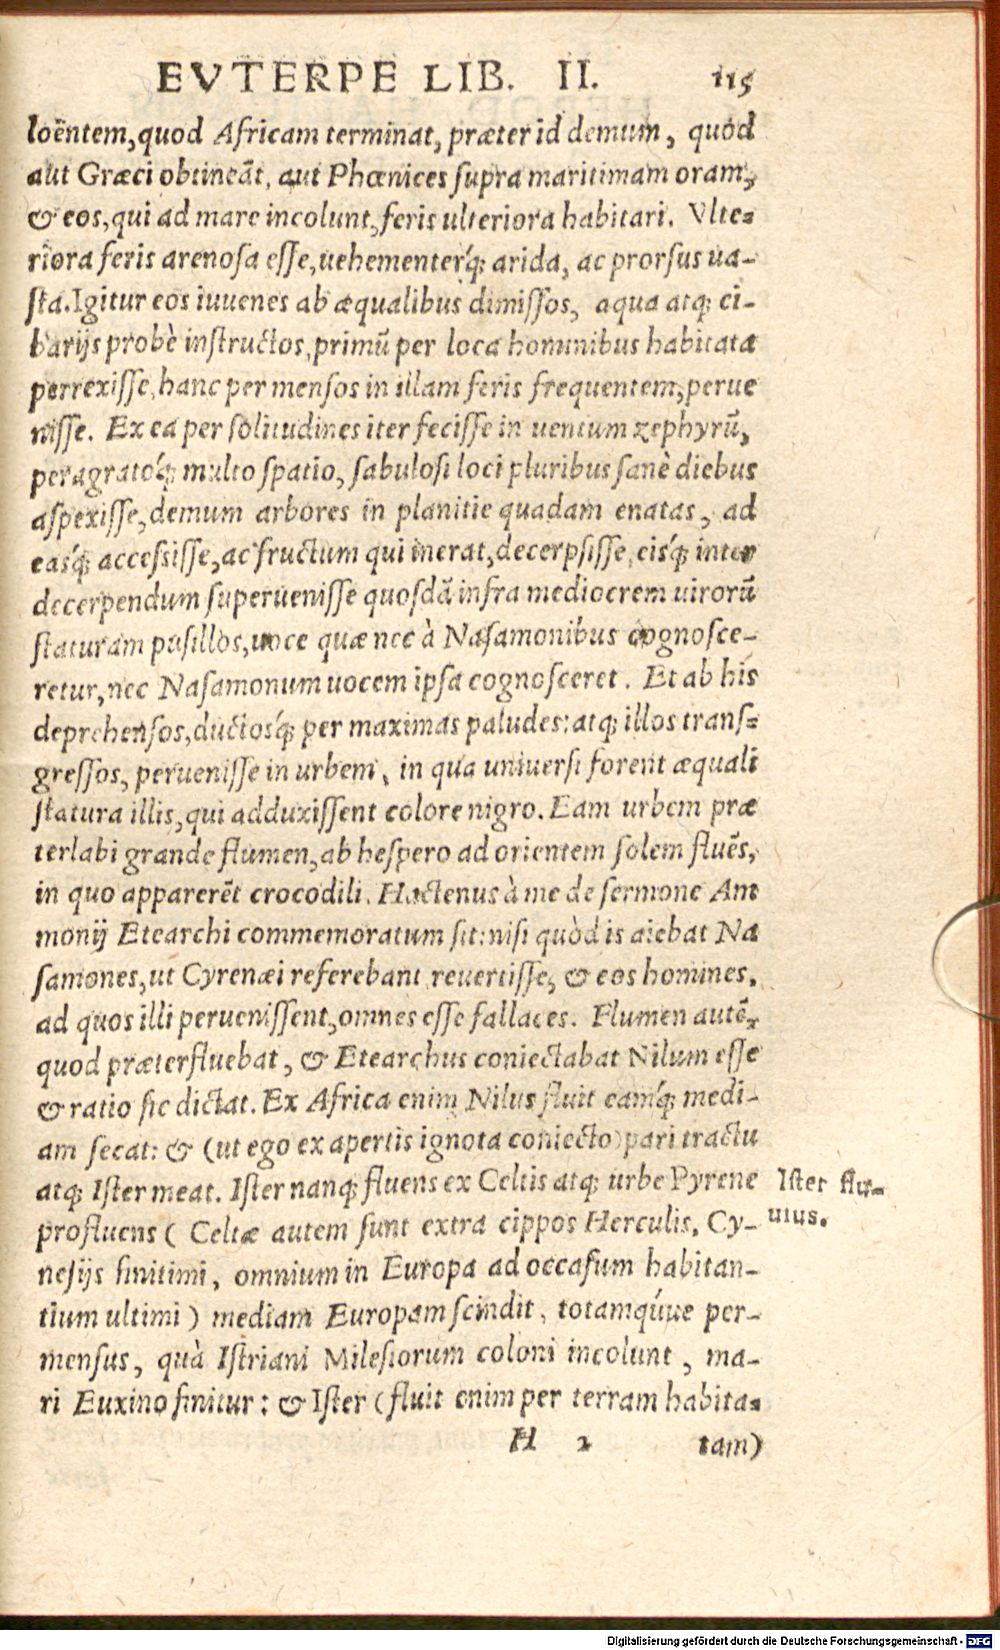 EVTERPE LIB. II. 115
loëntem, quod Africam terminat, præter id demum, quod
aut Græci obtineāt, aut Phœnices supra maritimam oram,
& eos, qui ad mare incolunt, feris ulteriora habitari. Vlte-
riora feris arenosa esse, uehementerq́; arida, ac prorsus ua-
sta. Igitur eos iuuenes ab æqualibus dimissos, aqua atq; ci-
barijs probè instructos, primū per loca hominibus habitata
perrexisse, hanc permensos in illam feris frequentem, perue
nisse. Ex ea per solitudines iter fecisse in uentum zephyrū,
peragratoq́; multo spatio, sabulosi loci pluribus sanè diebus
aspexisse, demum arbores in planitie quadam enatas, ad
easq́; accessisse, ac fructum qui inerat, decerpsisse, eisq́; inter
decerpendum superuenisse quosdā infra mediocrem uirorū
staturam pusillos, uoce quæ nec à Nasamonibus cognosce-
retur, nec Nasamonum uocem ipsa cognosceret. Et ab his
deprehensos, ductosq́; per maximas paludes: atq; illos trans-
gressos, peruenisse in urbem, in qua uniuersi forent æquali
statura illis, qui adduxissent colore nigro. Eam urbem præ
terlabi grande flumen, ab hespero ad orientem solem fluēs,
in quo apparerēt crocodili. Hactenus à me de sermone Am
monij Etearchi commemoratum sit: nisi quòd is aiebat Na
samones, ut Cyrenæi referebant reuertisse, & eos homines,
ad quos illi peruenissent, omnes esse fallaces. Flumen autē,
quod præterfluebat, & Etearchus coniectabat Nilum esse
& ratio sic dictat. Ex Africa enim Nilus fluit eamq́; medi-
am secat: & (ut ego ex apertis ignota coniecto) pari tractu
atq; Ister meat. Ister nanq; fluens ex Celtis atq; urbe Pyrene
profluens ( Celtæ autem sunt extra cippos Herculis, Cy-
nesijs finitimi, omnium in Europa ad occasum habitan-
tium ultimi ) mediam Europam scindit, totamq́ue per-
mensus, quà Istriani Milesiorum coloni incolunt, ma-
ri Euxino finitur: & Ister (fluit enim per terram habita-
H 2 tam)
Ister flu-
uius.
Digitalisierung gefördert durch die Deutsche Forschungsgemeinschaft - DFG